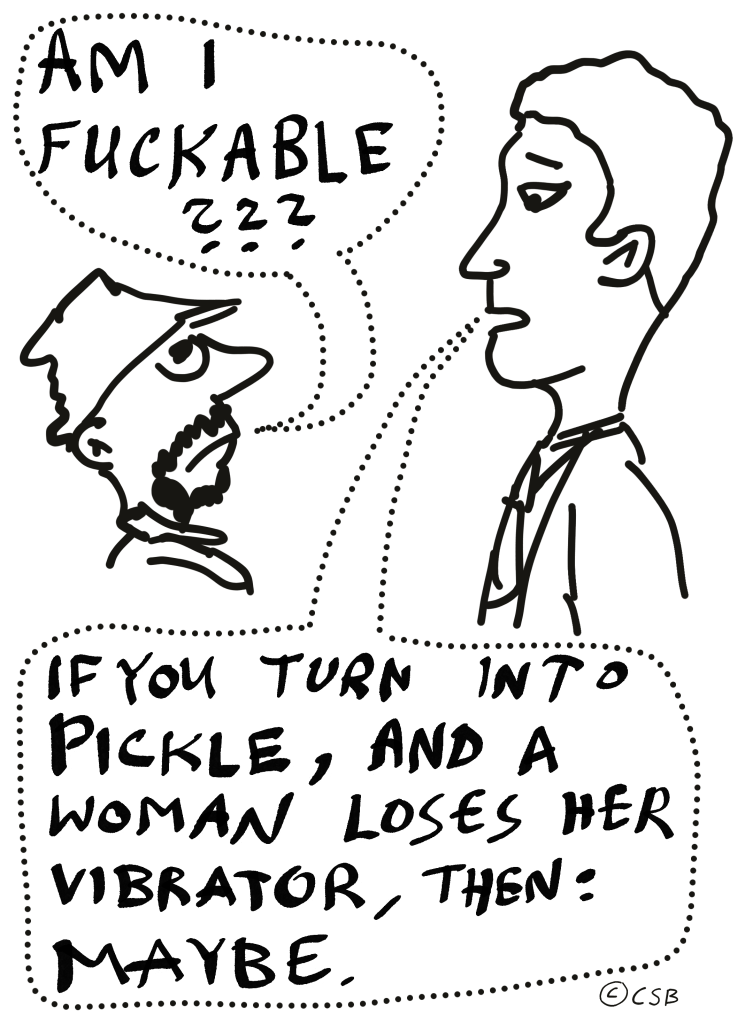 AM I
FUCKABLE
???
IF YOU TURN INTO
PICKLE, AND A
WOMAN LOSES HER
VIBRATOR, THEN:
MAYBE.
© CSB